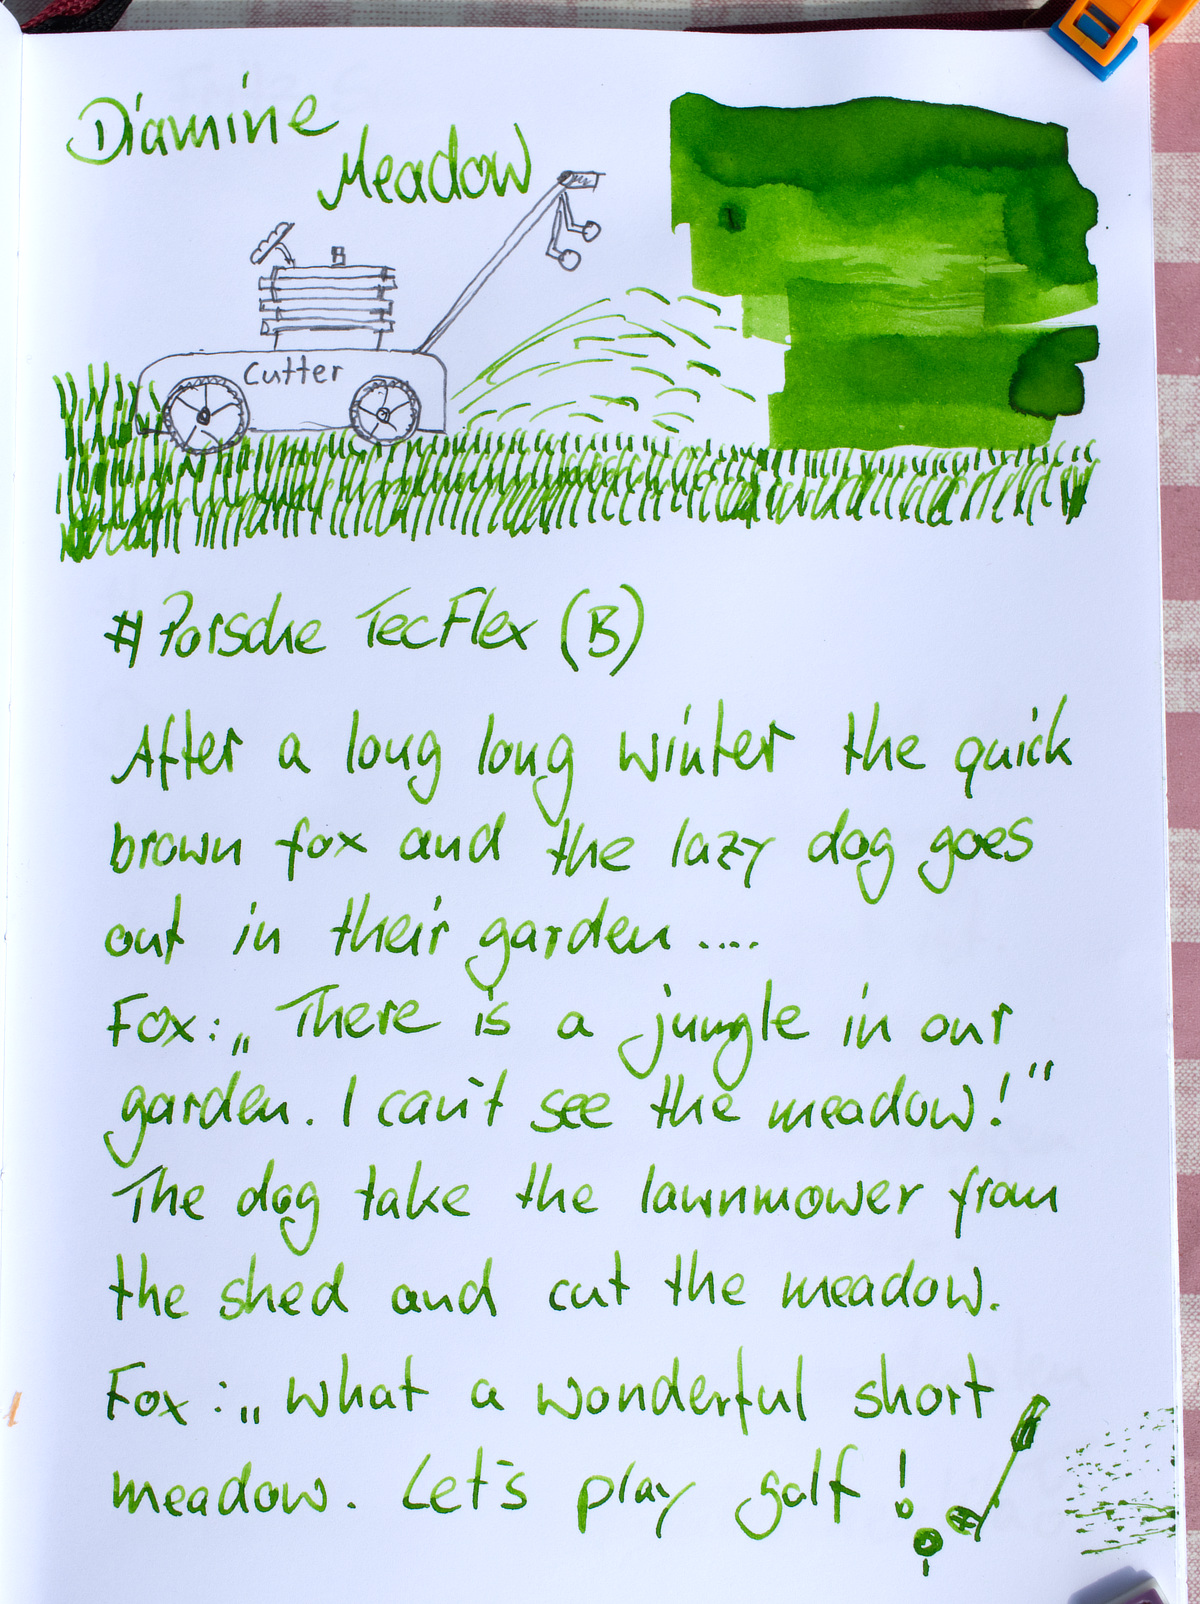 Diamine
Meadow
Cutter
#Porsche TecFlex (B)
After a long long winter the quick
brown fox and the lazy dog goes
out in their garden ....
Fox: „There is a jungle in our
garden. I can't see the meadow!"
The dog take the lawnmower from
the shed and cut the meadow.
Fox: „what a wonderful short
meadow. Let's play golf!